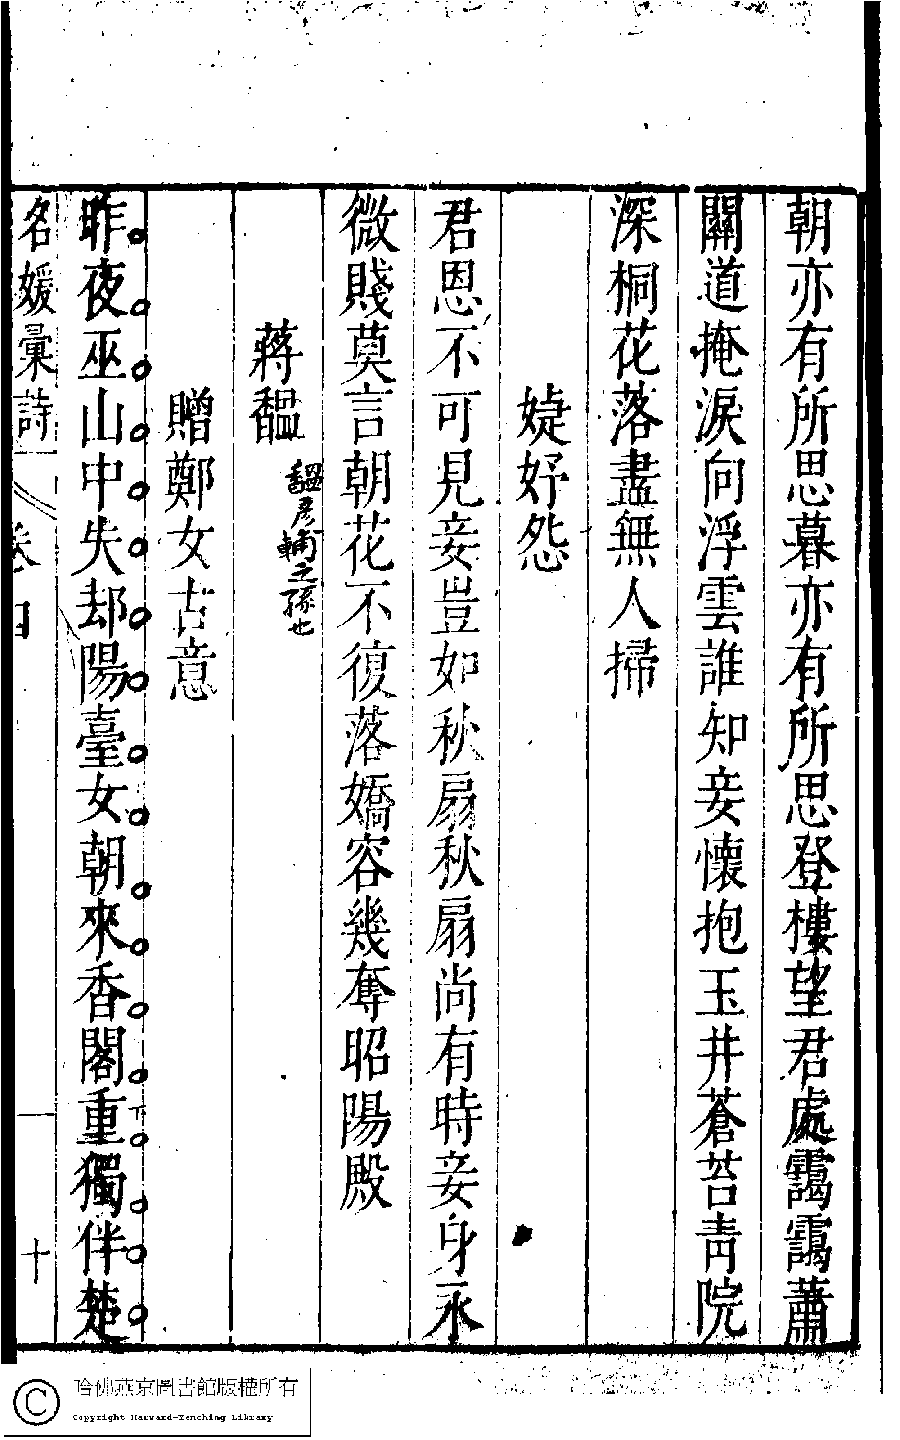 朝亦有所思暮亦有所思登樓望君處靄靄蕭
關道掩淚向浮雲誰知妾懷抱玉井蒼苔青院
深桐花落盡無人掃
婕妤怨
君恩不可見妾豈如秋扇秋扇尚有時妾身永
微賤莫言朝花不復落嬌容幾奪昭陽殿
蔣韞
韞彥輔之孫也
贈鄭女古意
昨夜巫山中失却陽臺女朝來香閣重獨伴楚
名媛彙詩
卷四
十
哈佛燕京圖書館版權所有
Copyright Harvard-Yenching Library